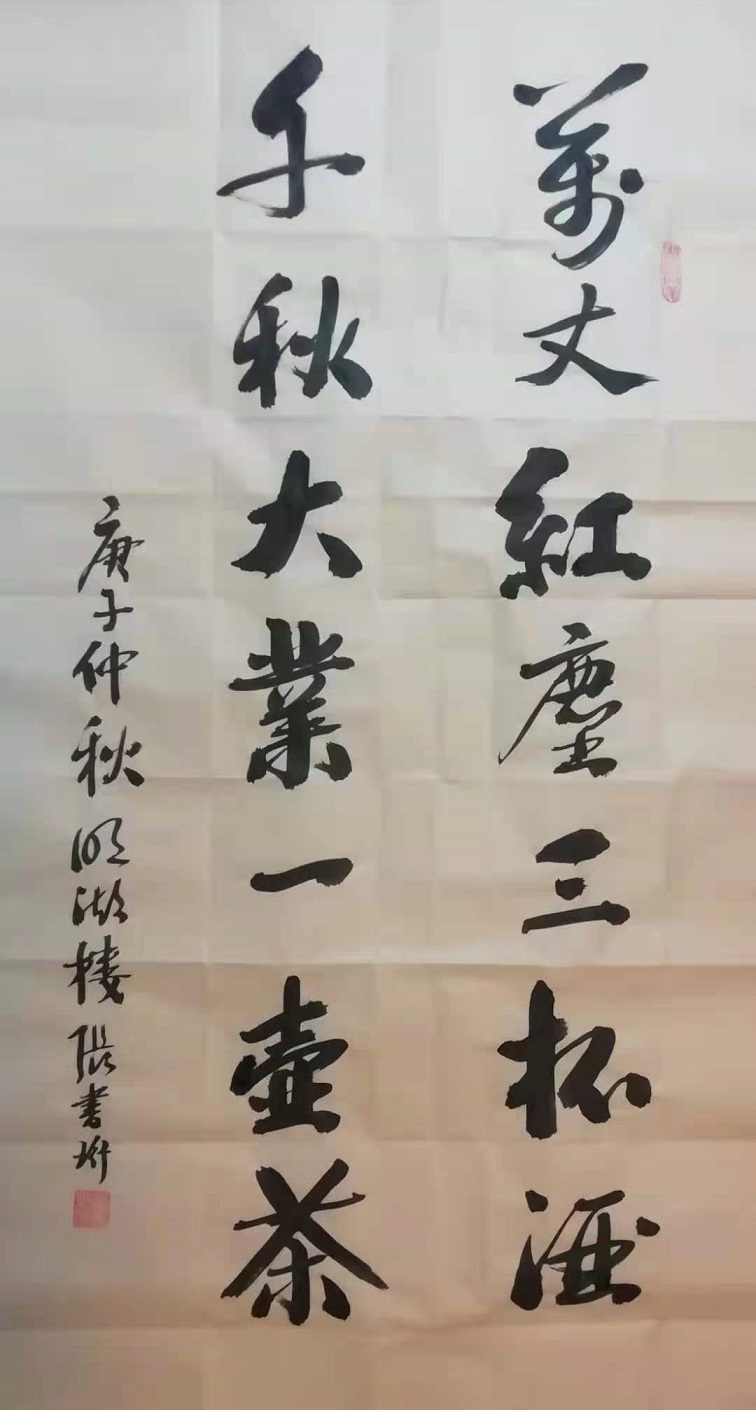 萬丈紅塵三杯酒
千秋大業一壺茶
庚子仲秋明湖樓張書